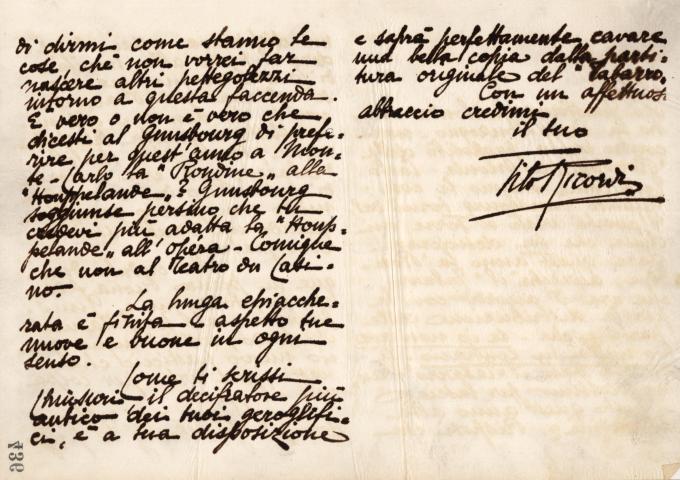 di dirmi come stanno le
cose, chè non vorrei far
nascere altri pettegolezzi
intorno a questa faccenda.
E' vero o non è vero che
dicesti al Gunsbourg di prefe-
rire per quest'anno a Mon-
te-Carlo la "Rondine" alla
"Houppelande"? Gunsbourg
soggiunse persino che tu
credevi più adatta la "Houp-
pelande" all'opéra-Comique
che non al Teatro du Casi-
no.
La lunga chiacche-
rata è finita e aspetto tue
nuove e buone in ogni
senso.
Come ti scrissi
il decifratore più
antico dei tuoi geroglifi-
ci, è a tua disposizione
e saprà perfettamente cavare
una bella copia dalla parti-
tura originale del "Tabarro.
Con un affettuos
abbraccio credimi
il tuo
Tito Ricordi
436